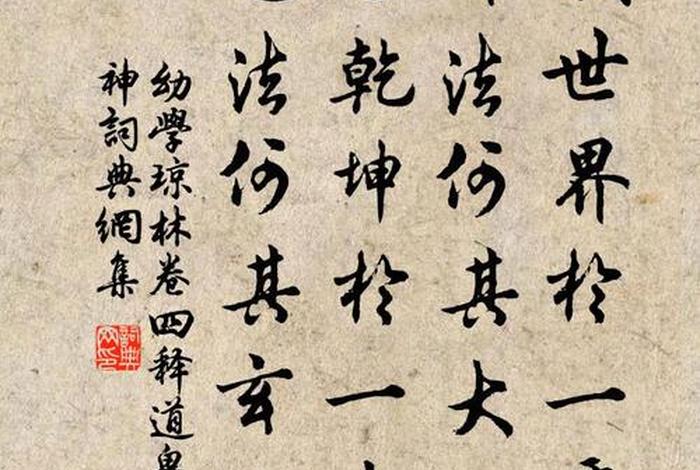 世界於一
法何其大
乾坤於一
法何其玄
幼學琼林卷四释道鬼
神詞典網集
詞典网印